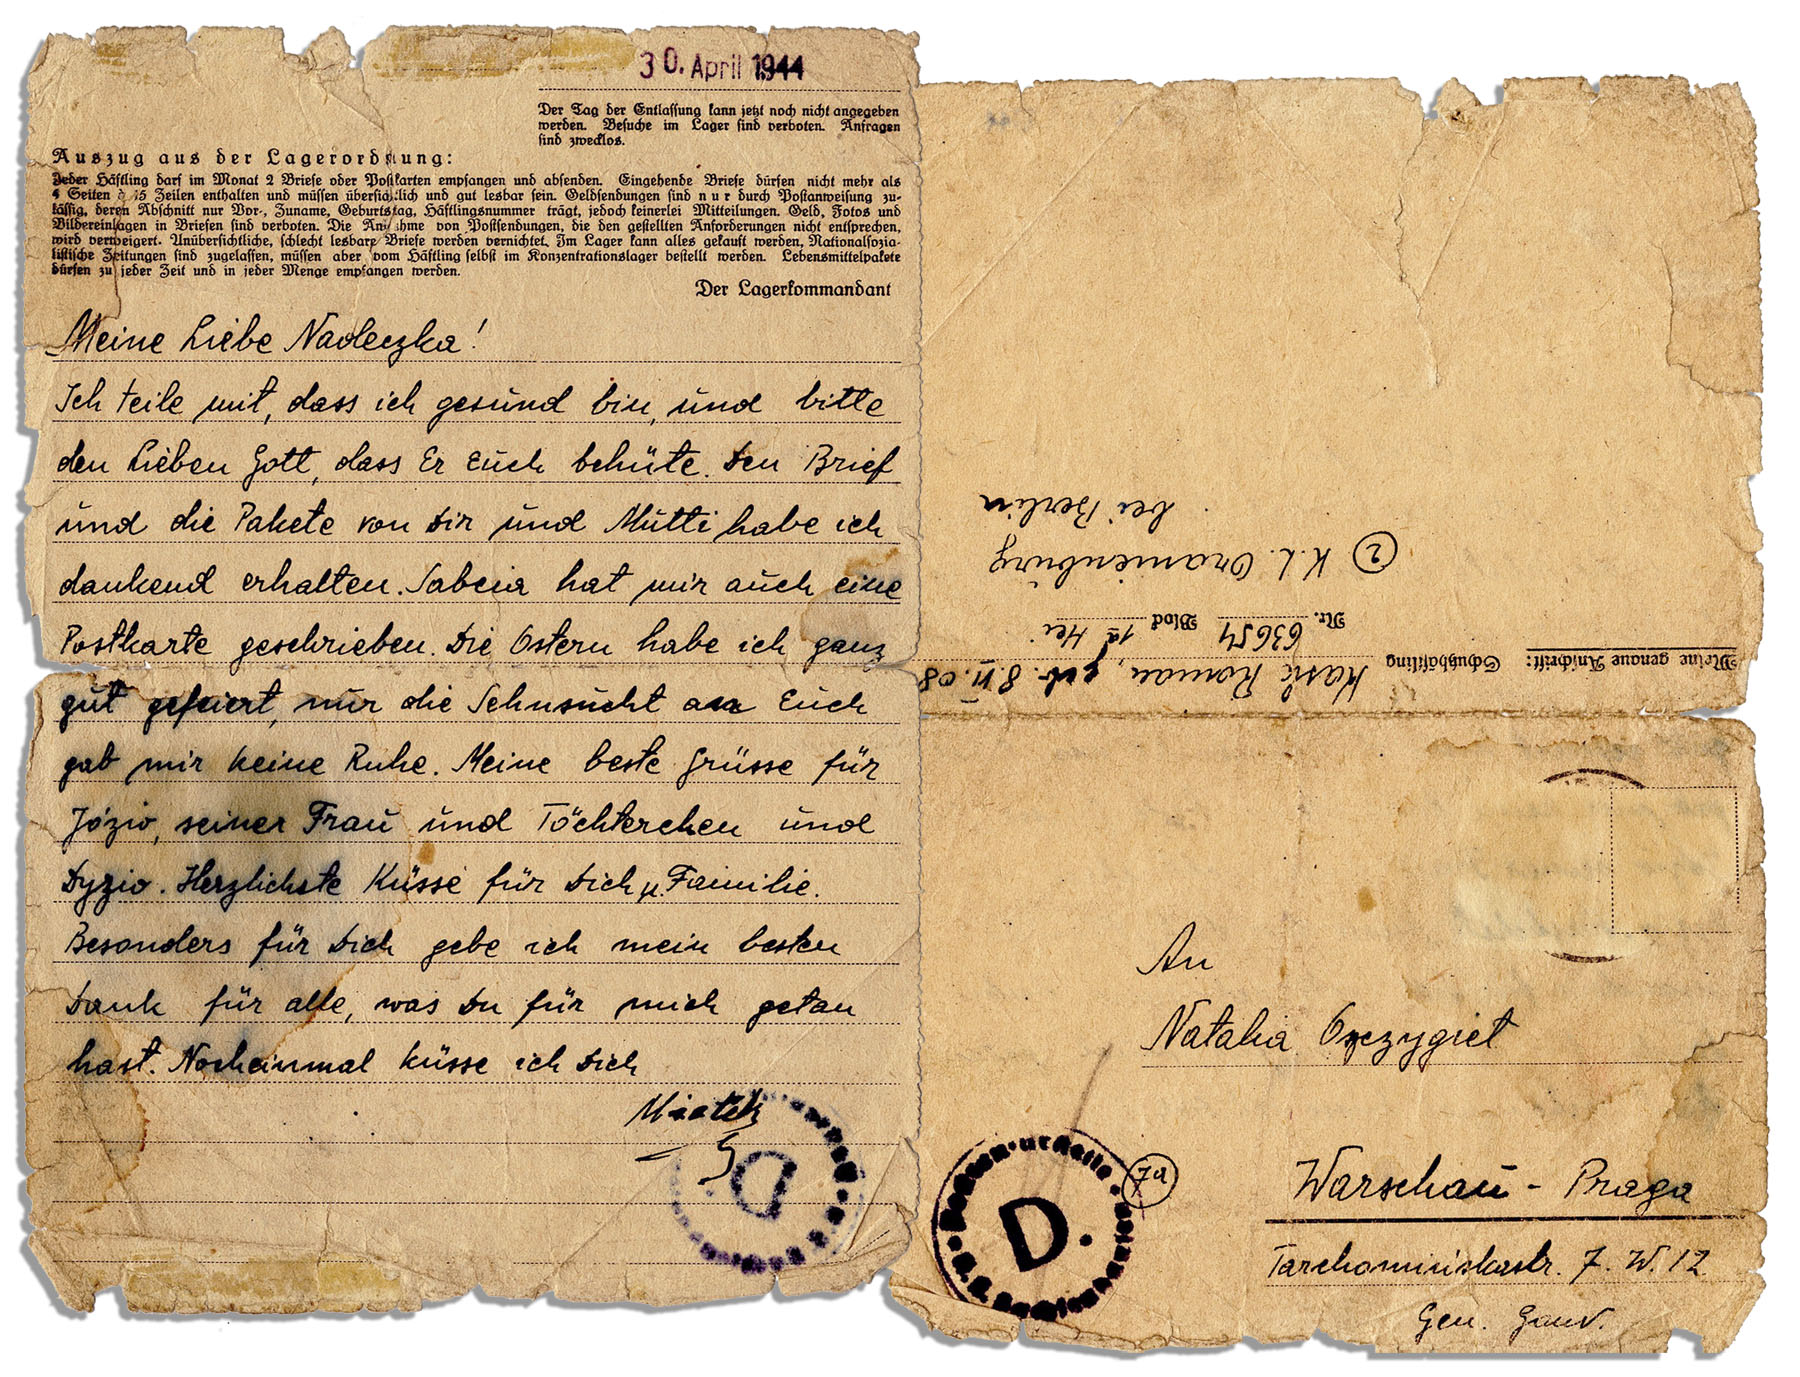 30. April 1944
Der Tag der Entlassung kann jetzt noch nicht angegeben
werden. Besuche im Lager sind verboten. Anfragen
sind zwecklos.
Auszug aus der Lagerordnung:
Jeder Häftling darf im Monat 2 Briefe oder Postkarten empfangen und absenden. Eingehende Briefe dürfen nicht mehr als
4 Seiten à 15 Zeilen enthalten und müssen übersichtlich und gut lesbar sein. Geldsendungen sind nur durch Postanweisung zu-
lässig, deren Abschnitt nur Vor-, Zuname, Geburtstag, Häftlingsnummer trägt, jedoch keinerlei Mitteilungen. Geld, Fotos und
Bildereinlagen in Briefen sind verboten. Die Annahme von Postsendungen, die den gestellten Anforderungen nicht entsprechen,
wird verweigert. Unübersichtliche, schlecht lesbare Briefe werden vernichtet. Im Lager kann alles gekauft werden, Nationalsozia-
listische Zeitungen sind zugelassen, müssen aber vom Häftling selbst im Konzentrationslager bestellt werden. Lebensmittelpakete
dürfen zu jeder Zeit und in jeder Menge empfangen werden.
Der Lagerkommandant
Meine Liebe Nadeczka!
Ich teile mit, dass ich gesund bin, und bitte
den Lieben Gott, dass Er Euch behüte. Den Brief
und die Pakete von Dir und Mutti habe ich
dankend erhalten. Sabcia hat mir auch eine
Postkarte geschrieben. Die Ostern habe ich ganz
gut gefeiert, nur die Sehnsucht an Euch
gab mir keine Ruhe. Meine beste Grüsse für
Józio, seiner Frau und Töchterchen und
Dyzio. Herzlichste Küsse für Dich u. Familie.
Besonders für Dich gebe ich mein besten
Dank für alle, was Du für mich getan
hast. Nocheinmal küsse ich Dich
Mietek
D
Meine genaue Anschrift: Schutzhäftling Kasić Roman, geb. 8.VI.08
Nr. 63654 Block 12 Hei
2 K.L. Oranienburg
bei Berlin
An
Natalia
Warschau - Praga
Tarchomińskastr. 7. W. 12
Gen. Gouv.
D.
7a